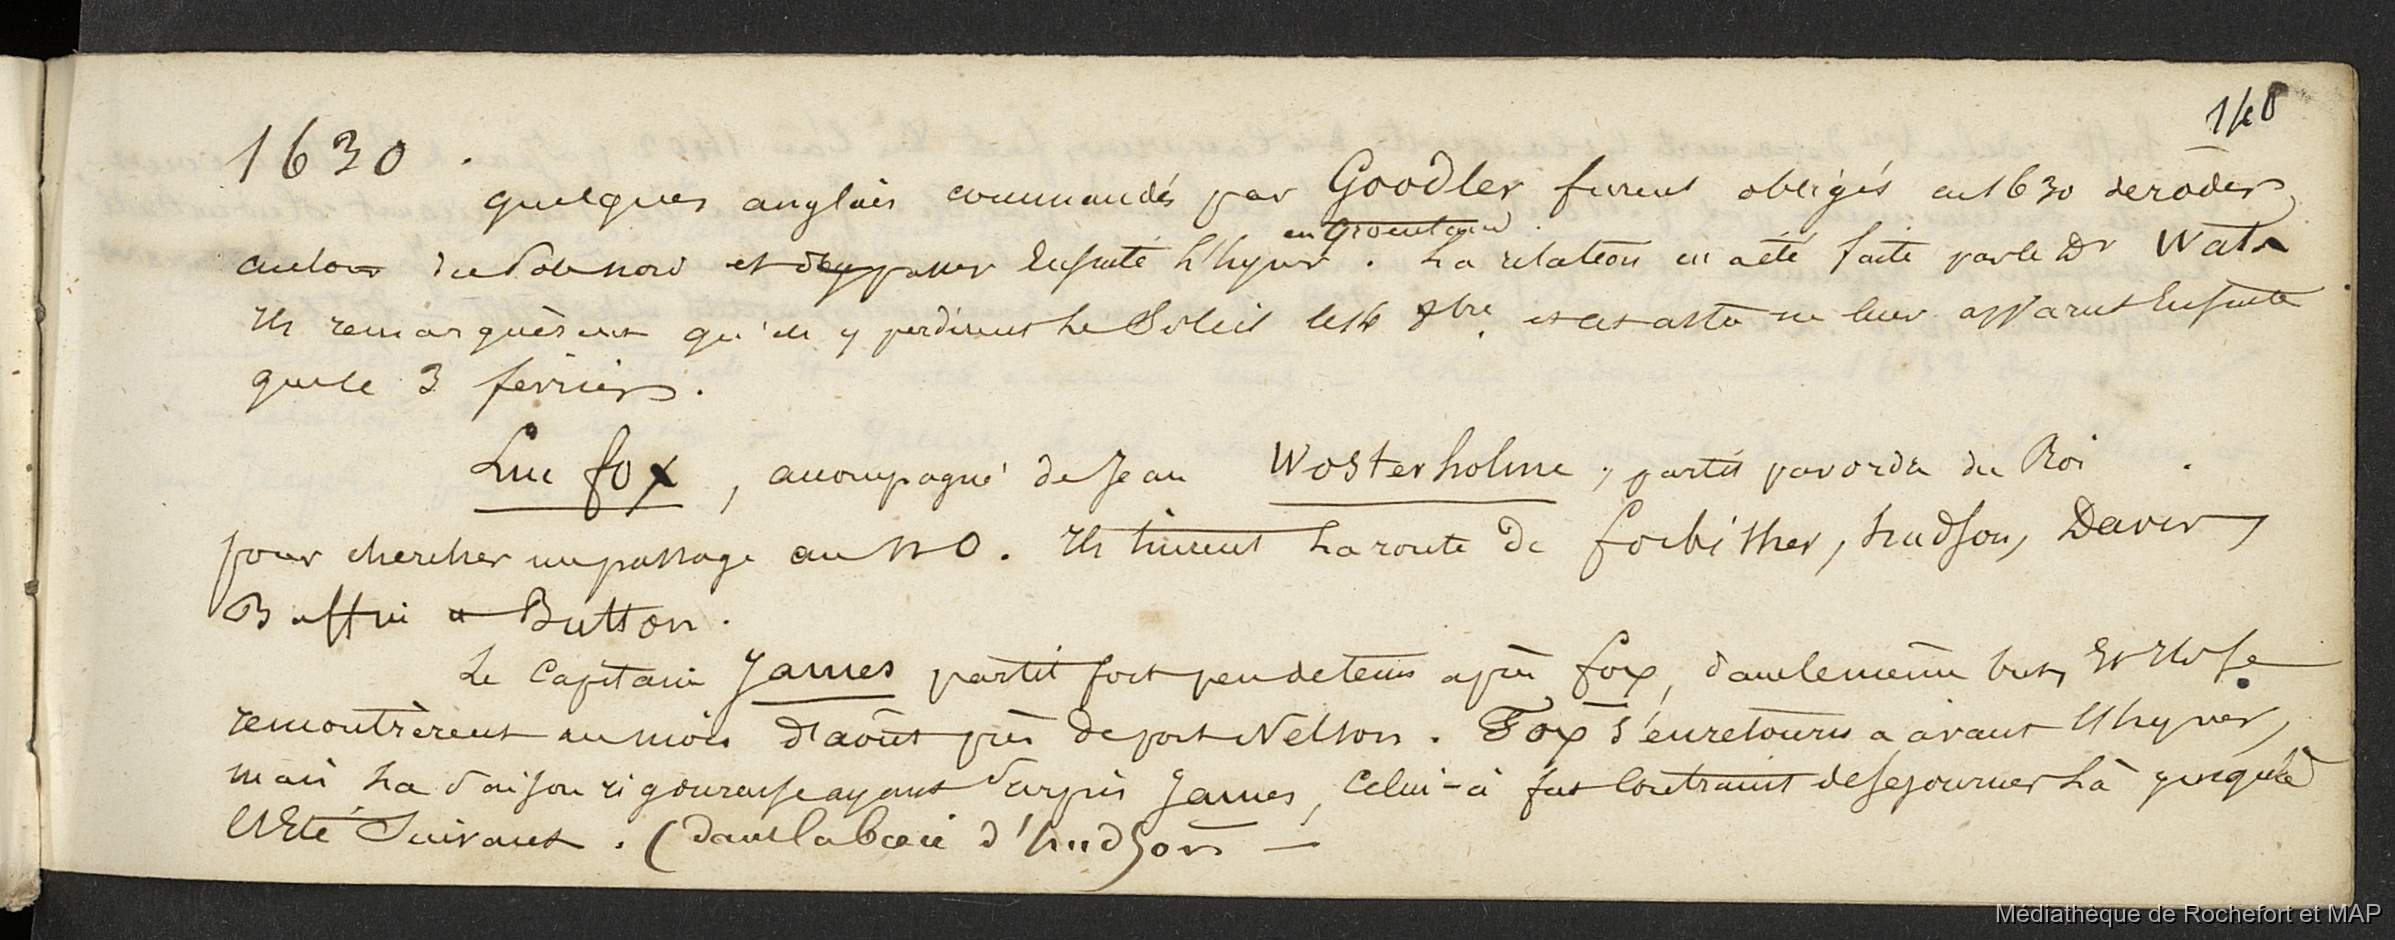 148
1630.
quelques anglais commandés par Goodler furent obligés en 1630 de roder
autour du Pole nord et d'y passer Ensuite L'hyver en Groenland. La relation en a été faite par le Dr Wats
Ils remarquèrent qu'ils y perdirent Le Soleil le 14 8bre. et cet astre ne leur apparut Ensuite
que le 3 fevrier.
Luc fox, accompagné de Jean Wosterholme, partit par ordre du Roi
pour chercher un passage au NO. Ils tinrent La route de forbisher, hudson, Davis,
Baffin et Button.
Le Capitaine James partit fort peu de tems après fox, dans le même but, Et Ils se
rencontrèrent au mois d'août près de port Nelson. Fox s'en retourna avant L'hyver,
mais La Saison rigoureuse ayant surpris James, Celui-ci fut Contraint de sejourner Là jusqu'à
L'Eté Suivant. (dans la baie d'hudson) —
Médiathèque de Rochefort et MAP